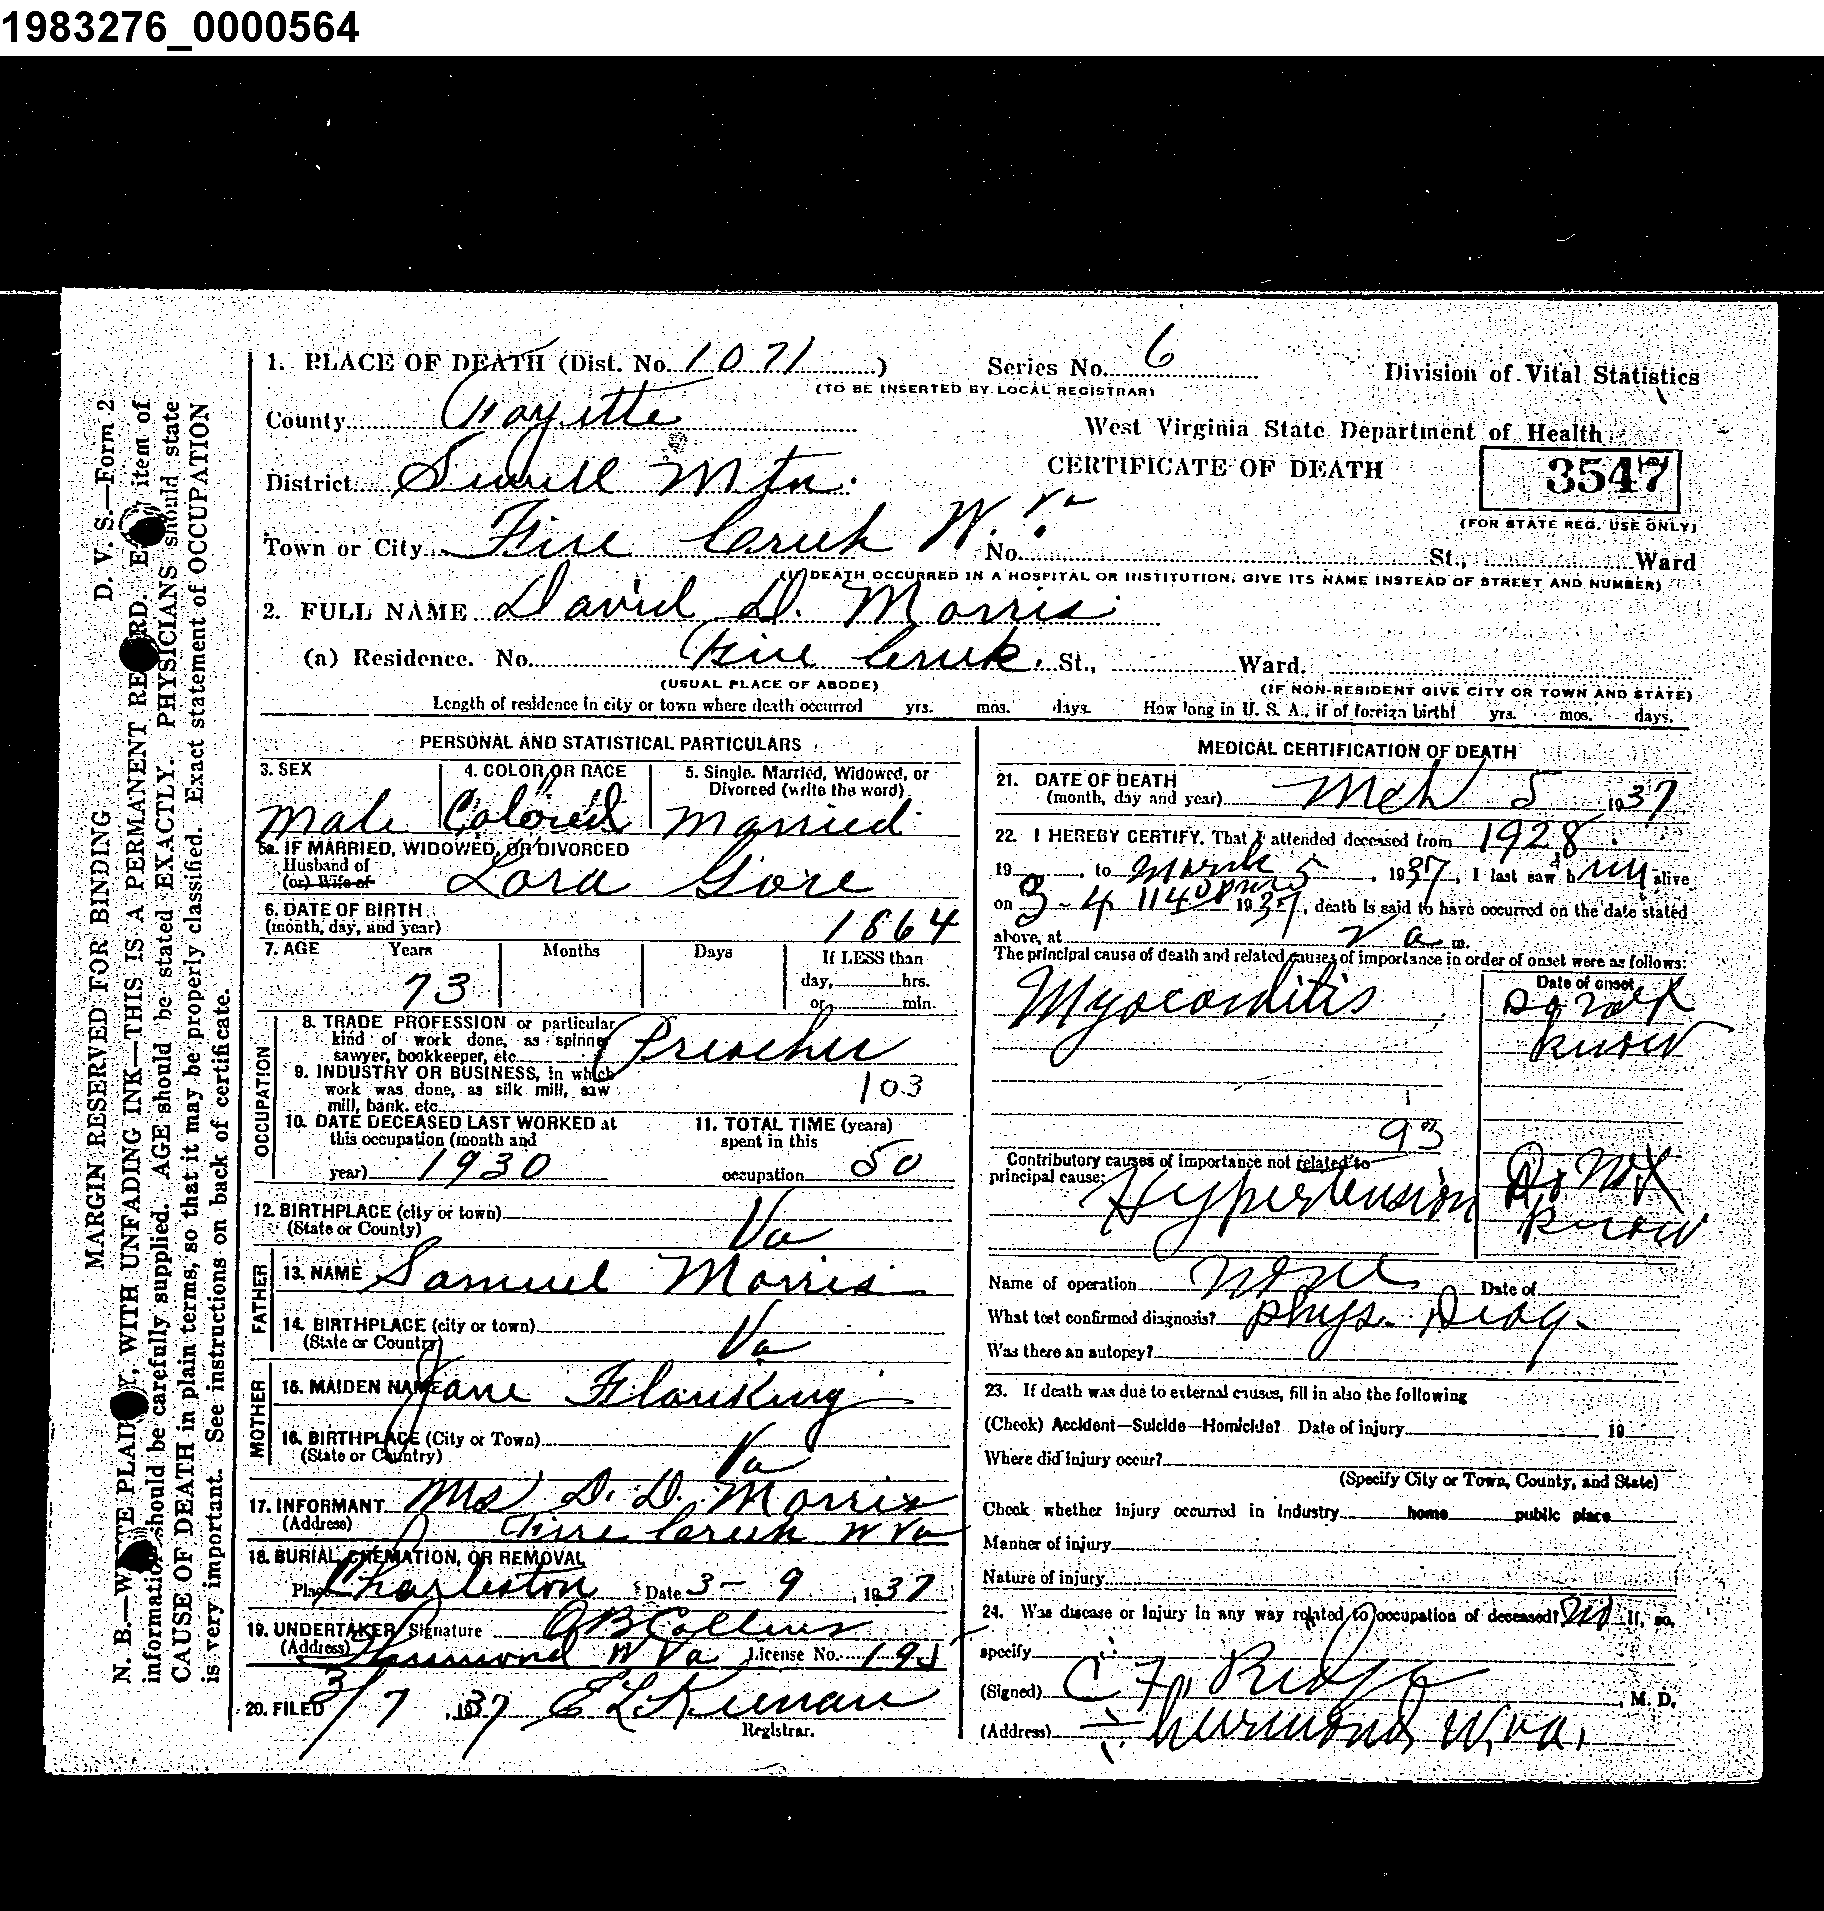 1983276_0000564
1. PLACE OF DEATH (Dist. No. 1071 ) Series No. 6 Division of Vital Statistics
(TO BE INSERTED BY LOCAL REGISTRAR)
County Fayette West Virginia State Department of Health
District Sewell Mtn. CERTIFICATE OF DEATH 3547
(FOR STATE REG. USE ONLY)
Town or City Fire Creek W. Va No. St., Ward
(IF DEATH OCCURRED IN A HOSPITAL OR INSTITUTION, GIVE ITS NAME INSTEAD OF STREET AND NUMBER)
2. FULL NAME David D. Morris
(a) Residence. No. Fire Creek. St., Ward.
(USUAL PLACE OF ABODE) (IF NON-RESIDENT GIVE CITY OR TOWN AND STATE)
Length of residence in city or town where death occurred yrs. mos. days. How long in U. S. A., if of foreign birth? yrs. mos. days.
PERSONAL AND STATISTICAL PARTICULARS
3. SEX 4. COLOR OR RACE 5. Single. Married, Widowed, or
Divorced (write the word)
Male Colored Married
5a. IF MARRIED, WIDOWED, OR DIVORCED
Husband of
(or) Wife of Lora Gore
6. DATE OF BIRTH
(month, day, and year) 1864
7. AGE Years Months Days If LESS than
73 day, hrs.
or min.
OCCUPATION
8. TRADE PROFESSION or particular
kind of work done, as spinner
sawyer, bookkeeper, etc. Preacher
9. INDUSTRY OR BUSINESS, in which
work was done, as silk mill, saw
mill, bank, etc. 103
10. DATE DECEASED LAST WORKED at
this occupation (month and
year) 1930
11. TOTAL TIME (years)
spent in this
occupation 50
12. BIRTHPLACE (city or town)
(State or County) Va
FATHER
13. NAME Samuel Morris
14. BIRTHPLACE (city or town)
(State or Country) Va
MOTHER
15. MAIDEN NAME Jane
16. BIRTHPLACE (City or Town)
(State or Country) Va
17. INFORMANT Mrs D. D. Morris
(Address) Fire Creek W Va
18. BURIAL, CREMATION, OR REMOVAL
Place Charleston Date 3-9, 1937
19. UNDERTAKER Signature O B Collins
(Address) Thurmond W Va License No. 195
20. FILED 3/7, 1937 E L
Registrar.
MEDICAL CERTIFICATION OF DEATH
21. DATE OF DEATH
(month, day and year) Mch 5 1937
22. I HEREBY CERTIFY, That I attended deceased from 1928
19 , to March 5, 1937, I last saw him alive
on 3-4 1140 pm 1937, death is said to have occurred on the date stated
above, at 2 a m.
The principal cause of death and related causes of importance in order of onset were as follows:
Date of onset
Myocarditis Do not
know
93
Contributory causes of importance not related to
principal cause:
Hypertension Do Not
know
Name of operation None Date of
What test confirmed diagnosis? Phys. Diag.
Was there an autopsy?
23. If death was due to external causes, fill in also the following
(Check) Accident—Suicide—Homicide? Date of injury 19
Where did injury occur?
(Specify City or Town, County, and State)
Check whether injury occurred in industry home public place
Manner of injury
Nature of injury
24. Was disease or injury in any way related to occupation of deceased? No If, so,
specify
(Signed) C F Ridge, M. D.
(Address) Thurmond, W. Va.
D. V. S.—Form 2
MARGIN RESERVED FOR BINDING
N. B.—WRITE PLAINLY, WITH UNFADING INK—THIS IS A PERMANENT RECORD. Every item of
information should be carefully supplied. AGE should be stated EXACTLY. PHYSICIANS should state
CAUSE OF DEATH in plain terms, so that it may be properly classified. Exact statement of OCCUPATION
is very important. See instructions on back of certificate.